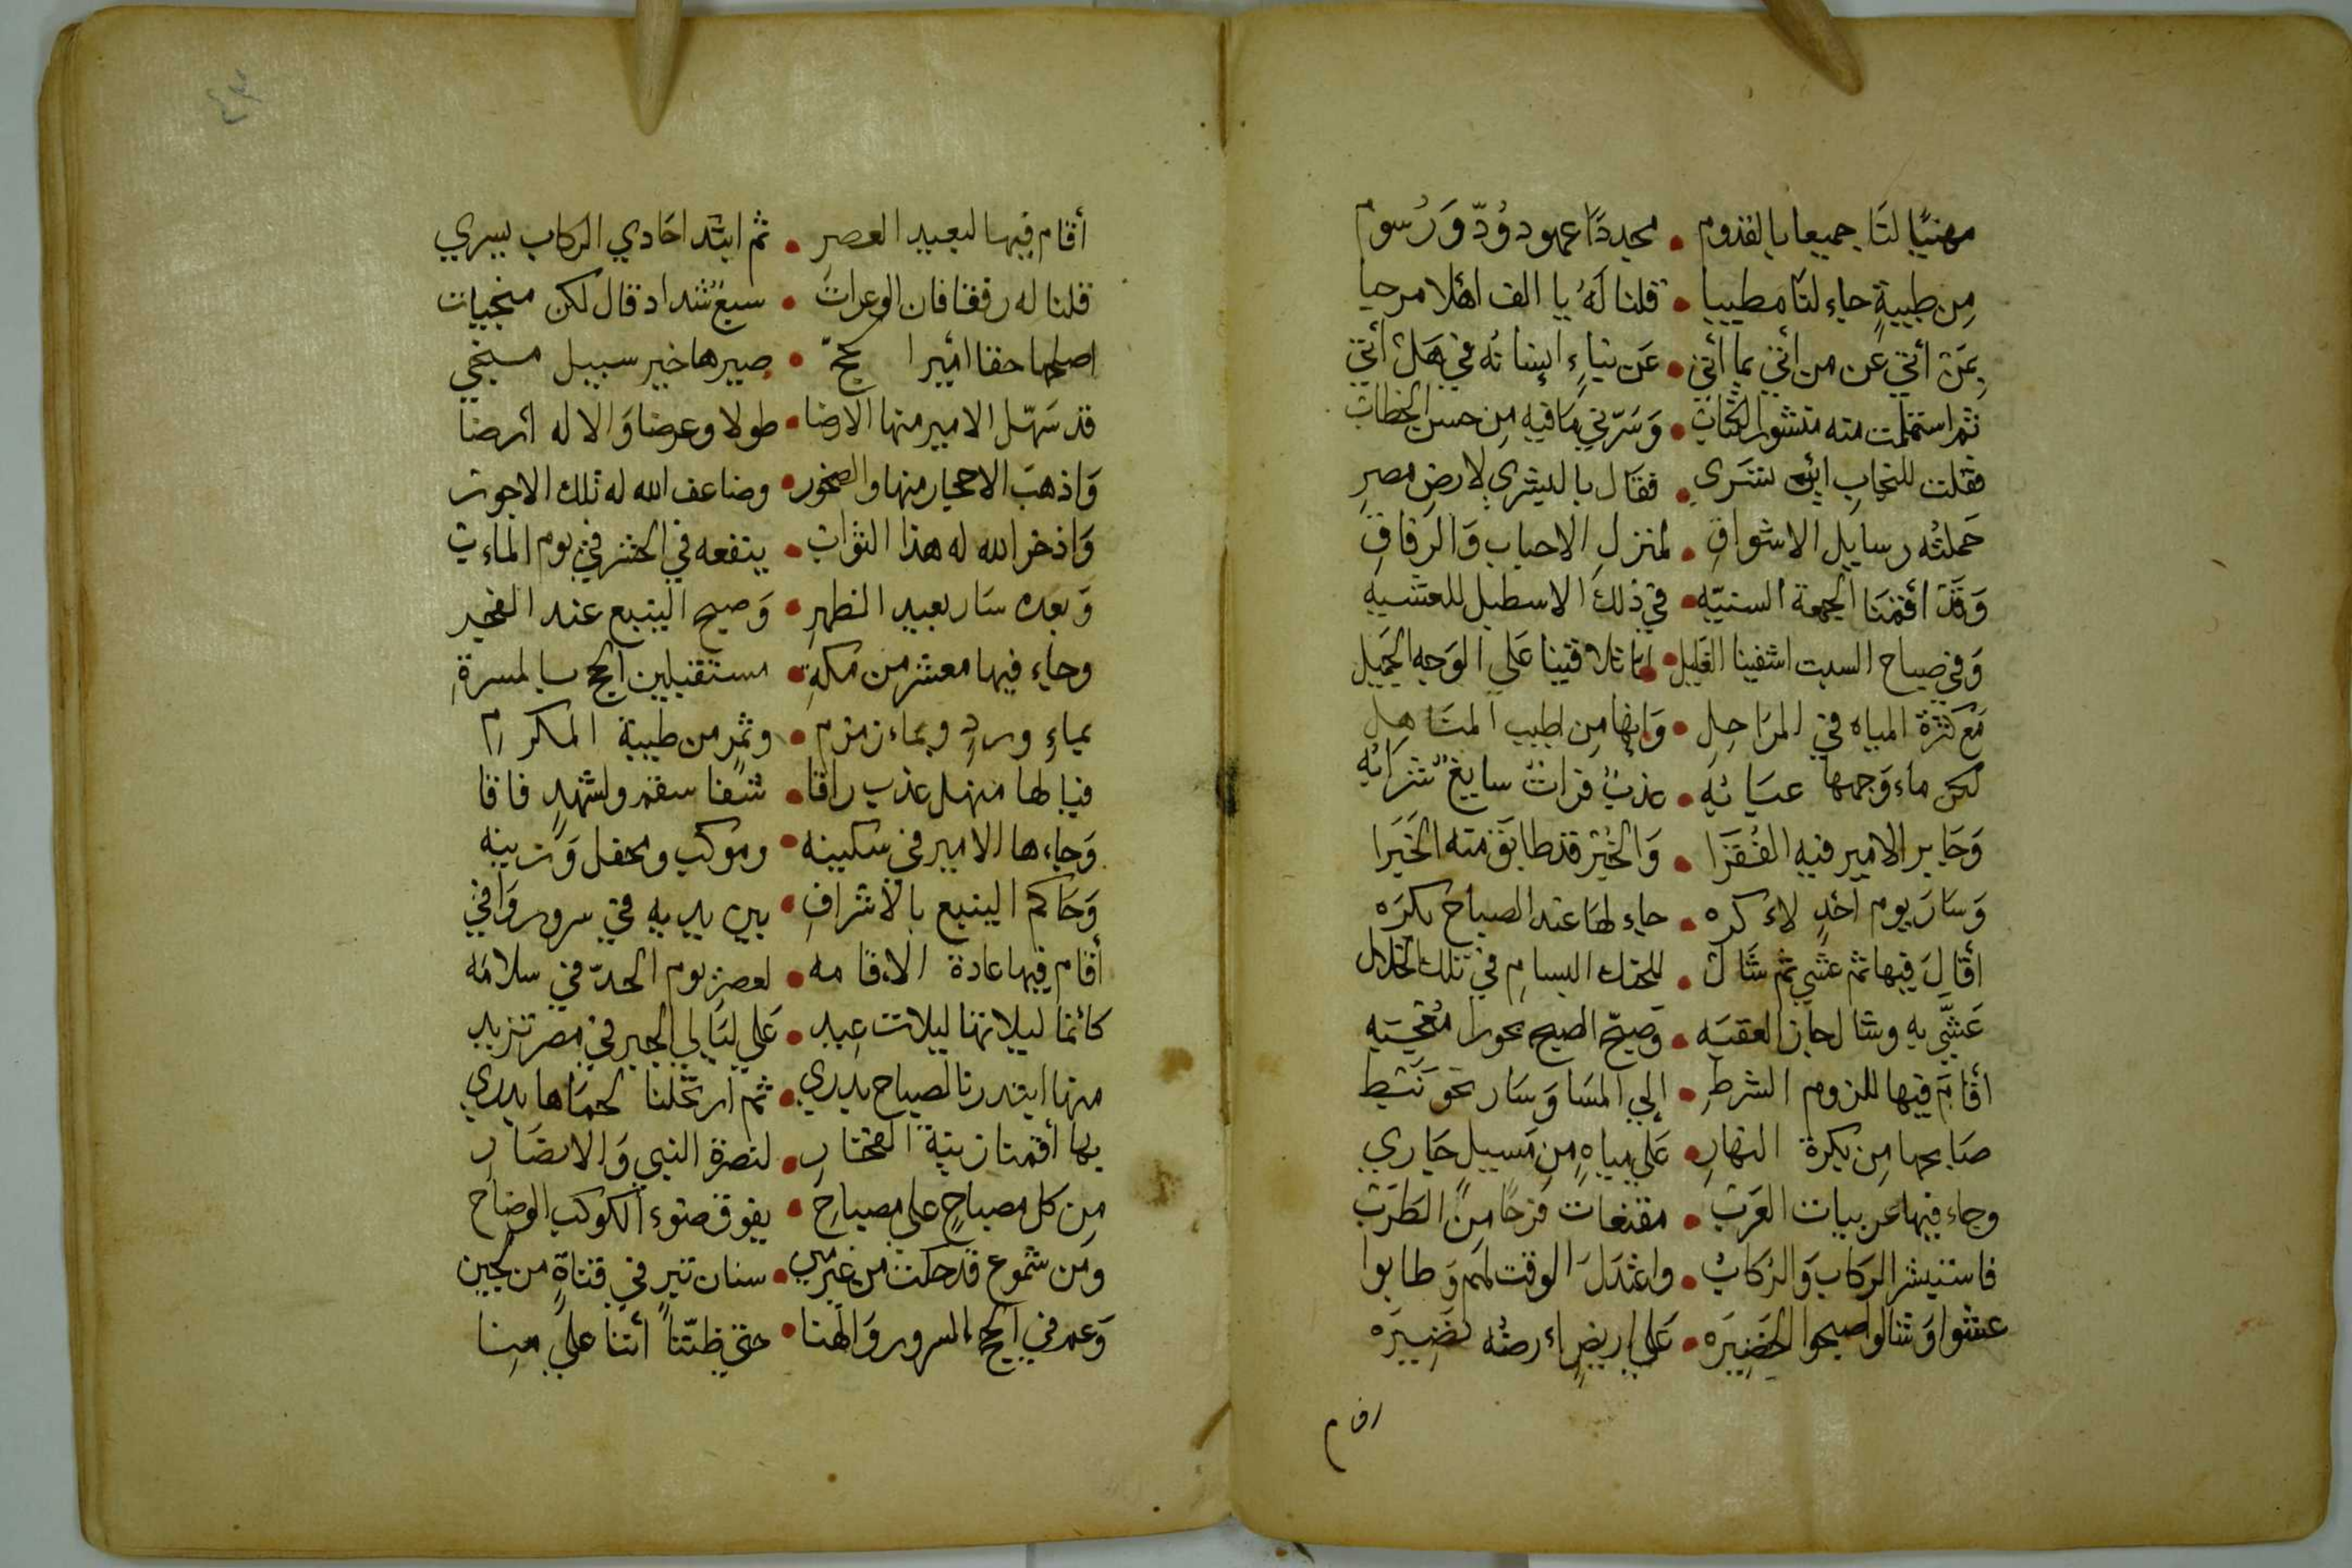 مهنيًا لنَا جميعا بالقدوم • مجددًا عهود وُدّ وَرُسوم
مِن طيبةٍ جاء لنَا مطيبا • قلنا لَهُ يا الف اهلا مرحبا
بمَن أتى عن من اتى بما أتى • عَن نباءٍ إنباتُه في هَل أتى
ثم استلمت منه منشور الكتاب • وَسَرّني مَا فيهِ مِن حسن الخطاب
فقلت للنجابِ اين تسَري • فقَال بالبشري لارضِ مصرِ
حَملتُه رسايل الاشواقِ • لمنزلِ الاحباب وَالرفاقِ
وَقَد أقمنَا الجمعة السنيّه • في ذلك الاسطبل للعشيه
وَفي صباح السبت اشفينا الغليل • لما تلاقينا عَلي الوَجه الجميل
مَع كثرة المياه في المرَاحِلِ • وَإنها مِن اطيب المنَاهِلِ
لكن ماء وَجهها عيَانُه • عذبٌ فراتٌ سايغٌ شرَابُه
وَجَابر الامير فيهِ الفُقَرَا • وَالخُبْر قد طابَق منه الخَبَرا
وَسَارَ يوم احَدٍ لاء كره • جاء لهَا عند الصباح بكرَه
أقَالَ فيها ثم عشي ثم شَال • للحنك البسامِ في تلك الخلال
عَشَّي به وشال جاز العقبَه • وَصبّح الصبح بحورا مُعجبَه
أقَامَ فيها للزوم الشرطِ • إلي المسَا وَسَار نحوَ نَبْط
صَابحها مِن بكرة النهارِ • عَلي مياهٍ مِن مَسيلٍ جَاري
وجاء فيها عربيات العرَب • مقنعات فرحًا مِن الطرَب
فاستبشر الركاب وَالرُكابُ • واعتدَلَ الوقت لهم وَطابوا
عشوا وَشالوا صبحوا الخَضِيرَه • عَلي اريضِ اءرضُه نَضِيرَه
اقام
أقام فيها لبعيد العصرِ • ثم ابتد احَادي الركاب يسري
قلنا له رفقا فان الوعرات • سبعٌ شداد قال لكن منجيات
اصلحها حقا أمير الحجّ • صيرها خير سبيل منجي
قد سَهّل الامير منها الارضا • طولا وعرضا وَالاله ارضا
وَاذهبَ الاحجار منها والصخور • وضاعف الله له تلك الاجور
وَاذخر الله له هذا الثوَاب • ينفعه في الحشر في يوم الماءب
وَبعده سَار بعيد الظهرِ • وَصبح الينبع عند الفجر
وجاء فيها معشر مِن مكةٍ • مستقبلين الحج بالمسرةِ
بماءِ وردٍ وبماء زمزم • وثمرٍ من طيبة المكرم
فيا لها منهل عذب راقا • شفا سقم ولشهدٍ فاقا
وَجاءها الامير في سكينه • وموكب ومحفل وَزينه
وَحَاكم الينبع بالاشرافِ • بين يديه في سرور وَافي
أقام فيها عادة الاقامه • لعصر يوم الحدّ في سلامَه
كأنما ليلاتها ليلات عِيد • عَلي ليَالي الجبر في مصر تزيد
منها ابتدرنا لصباح بدري • ثم ارتحلنا لحمَاها بدري
بها أقمنا زينة الفخارِ • لنصرة النبي وَالانصَارِ
مِن كل مصباحٍ علي مصباحِ • يفوق ضوء الكوكب الوضاح
ومَن شموع قد حكت من غير مين • سنان تبرٍ في قناةٍ من لجين
وَعم في الحج السرور وَالهنا • حتي ظنّنا أننا عَلي مِنا